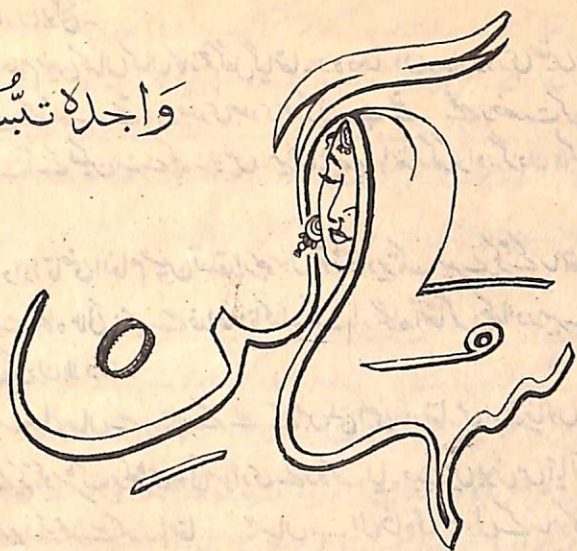 وَاجدہ تبسُّ
سہاگن